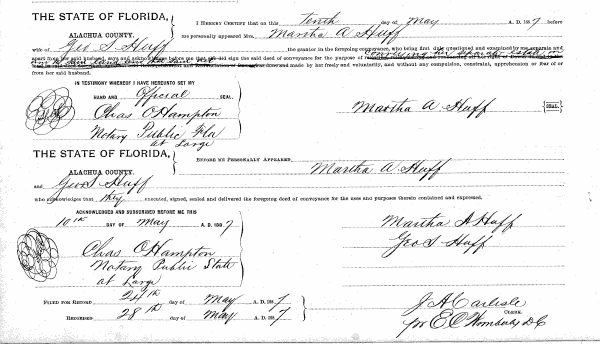 THE STATE OF FLORIDA,
ALACHUA COUNTY.
I HEREBY CERTIFY that on this tenth day of May A. D. 1887 before
me personally appeared Mrs. Martha A Huff
wife of Geo S Huff the grantor in the foregoing conveyance, who being first duly questioned and examined by me separate and
apart from her said husband, says and acknowledges before me that she did sign the said deed of conveyance for the purpose of conveying her separate estate in
made by her freely and voluntarily, and without any compulsion, constraint, apprehension or fear of or
from her said husband.
IN TESTIMONY WHEREOF I HAVE HEREUNTO SET MY
HAND AND Official SEAL.
Chas O Hampton
Notary Public Fla
at Large
Martha A Huff
SEAL
THE STATE OF FLORIDA,
ALACHUA COUNTY.
BEFORE ME PERSONALLY APPEARED, Martha A Huff
and Geo S Huff
who acknowledges that they executed, signed, sealed and delivered the foregoing deed of conveyance for the uses and purposes therein contained and expressed.
ACKNOWLEDGED AND SUBSCRIBED BEFORE ME THIS
10th DAY OF May A. D. 1887
Chas O Hampton
Notary Public State
at Large
Martha A Huff
Geo S Huff
FILED FOR RECORD 24th day of May A. D. 1887
RECORDED 28th day of May A. D. 1887
J A Carlisle
CLERK.
pr E C
D C